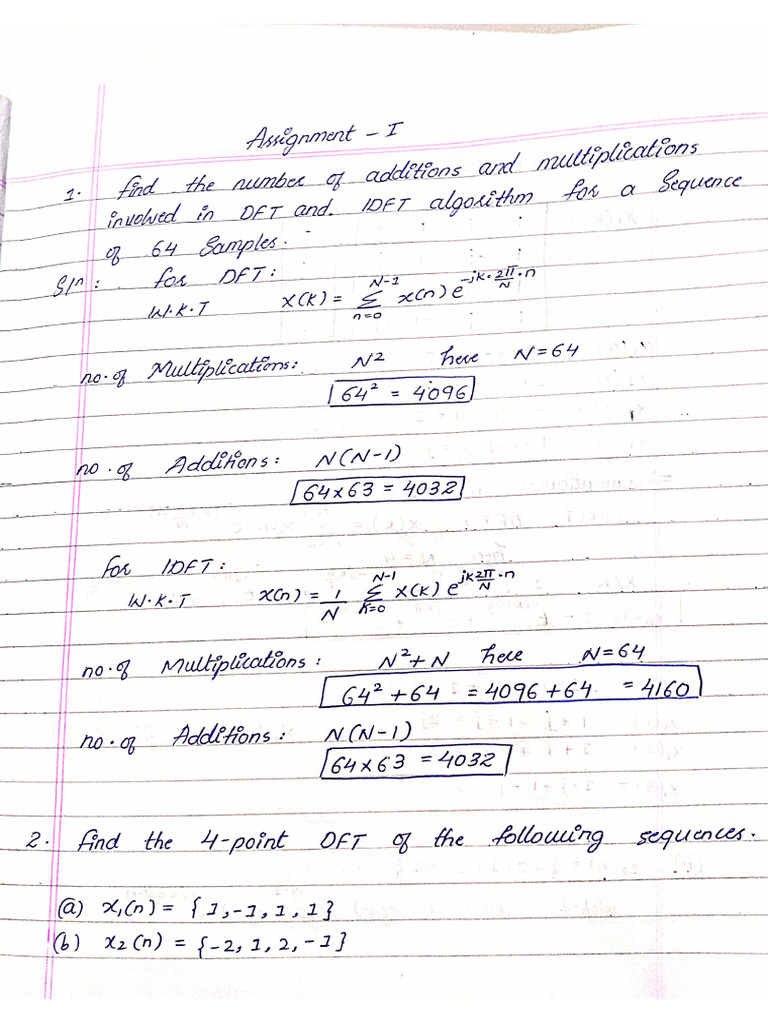 Assignment - I
1. Find the number of additions and multiplications
involved in DFT and. IDFT algorithm for a Sequence
of 64 Samples.
Slⁿ: for DFT:
W.K.T X(K) = Σ_{n=0}^{N-1} x(n) e^{-jK·2π/N·n}
no. of Multiplications: N² here N=64
64² = 4096
no. of Additions: N(N-1)
64×63 = 4032
for IDFT:
W.K.T x(n) = 1/N Σ_{K=0}^{N-1} X(K) e^{jK2π/N·n}
no. of Multiplications: N²+N here N=64
64²+64 = 4096+64 = 4160
no. of Additions: N(N-1)
64×63 = 4032
2. Find the 4-point DFT of the following sequences.
(a) x₁(n) = {1,-1,1,1}
(b) x₂(n) = {-2,1,2,-1}